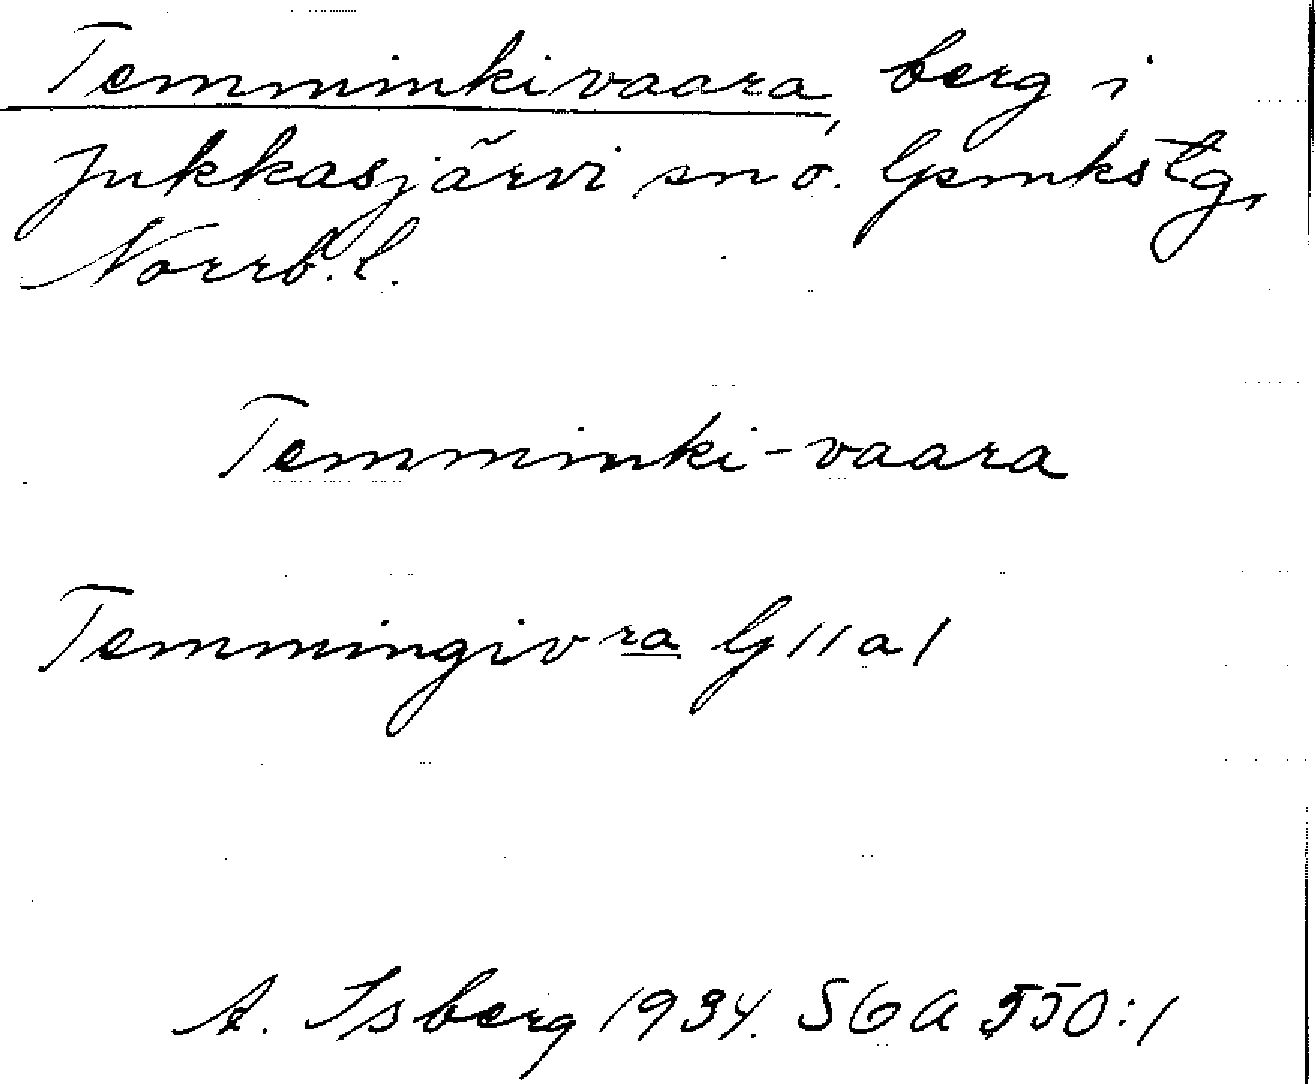 Temminkivaara, berg i
Jukkasjärvi sn o. lpsmkstg,
Norrb. l.
Temminki-vaara
Temmingivra G 11 a 1
A. Isberg 1934. SGA 550:1